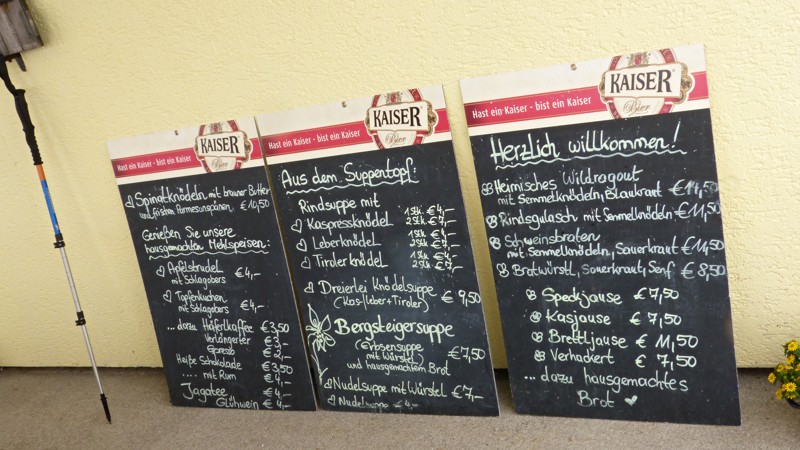 Hast ein Kaiser - bist ein Kaiser
KAISER
Bier
Spinatknödeln mit brauner Butter
und frischen Parmesanspänen €10,50
Genießen Sie unsere
hausgemachten Mehlspeisen:
Apfelstrudel
mit Schlagobers €4,-
Topfenkuchen
mit Schlagobers €4,-
... dazu Häferlkaffee €3,50
Verlängerter €3,-
Espresso €2,-
Heiße Schokolade €3,50
.... mit Rum €4,-
Jagatee €4,-
Glühwein €4,-
Hast ein Kaiser - bist ein Kaiser
KAISER
Bier
Aus dem Suppentopf:
Rindsuppe mit
Kaspressknödel 1 Stk. €4,-
2 Stk. €7,-
Leberknödel 1 Stk. €4,-
2 Stk. €7,-
Tirolerknödel 1 Stk. €4,-
2 Stk. €7,-
Dreierlei Knödelsuppe
(Kas-/Leber+Tiroler) € 9,50
Bergsteigersuppe
(Erbsensuppe
mit Würstel) €7,50
und hausgemachtem Brot
Nudelsuppe mit Würstel €7,-
Nudelsuppe €4,-
Hast ein Kaiser - bist ein Kaiser
KAISER
Bier
Herzlich willkommen!
Heimisches Wildragout
mit Semmelknödeln, Blaukraut €14,50
Rindsgulasch mit Semmelknödeln €11,50
Schweinsbraten
mit Semmelknödeln, Sauerkraut €11,50
Bratwürstl, Sauerkraut, Senf €8,50
Speckjause €7,50
Kasjause €7,50
Brettljause €11,50
Verhackert €7,50
... dazu hausgemachtes
Brot